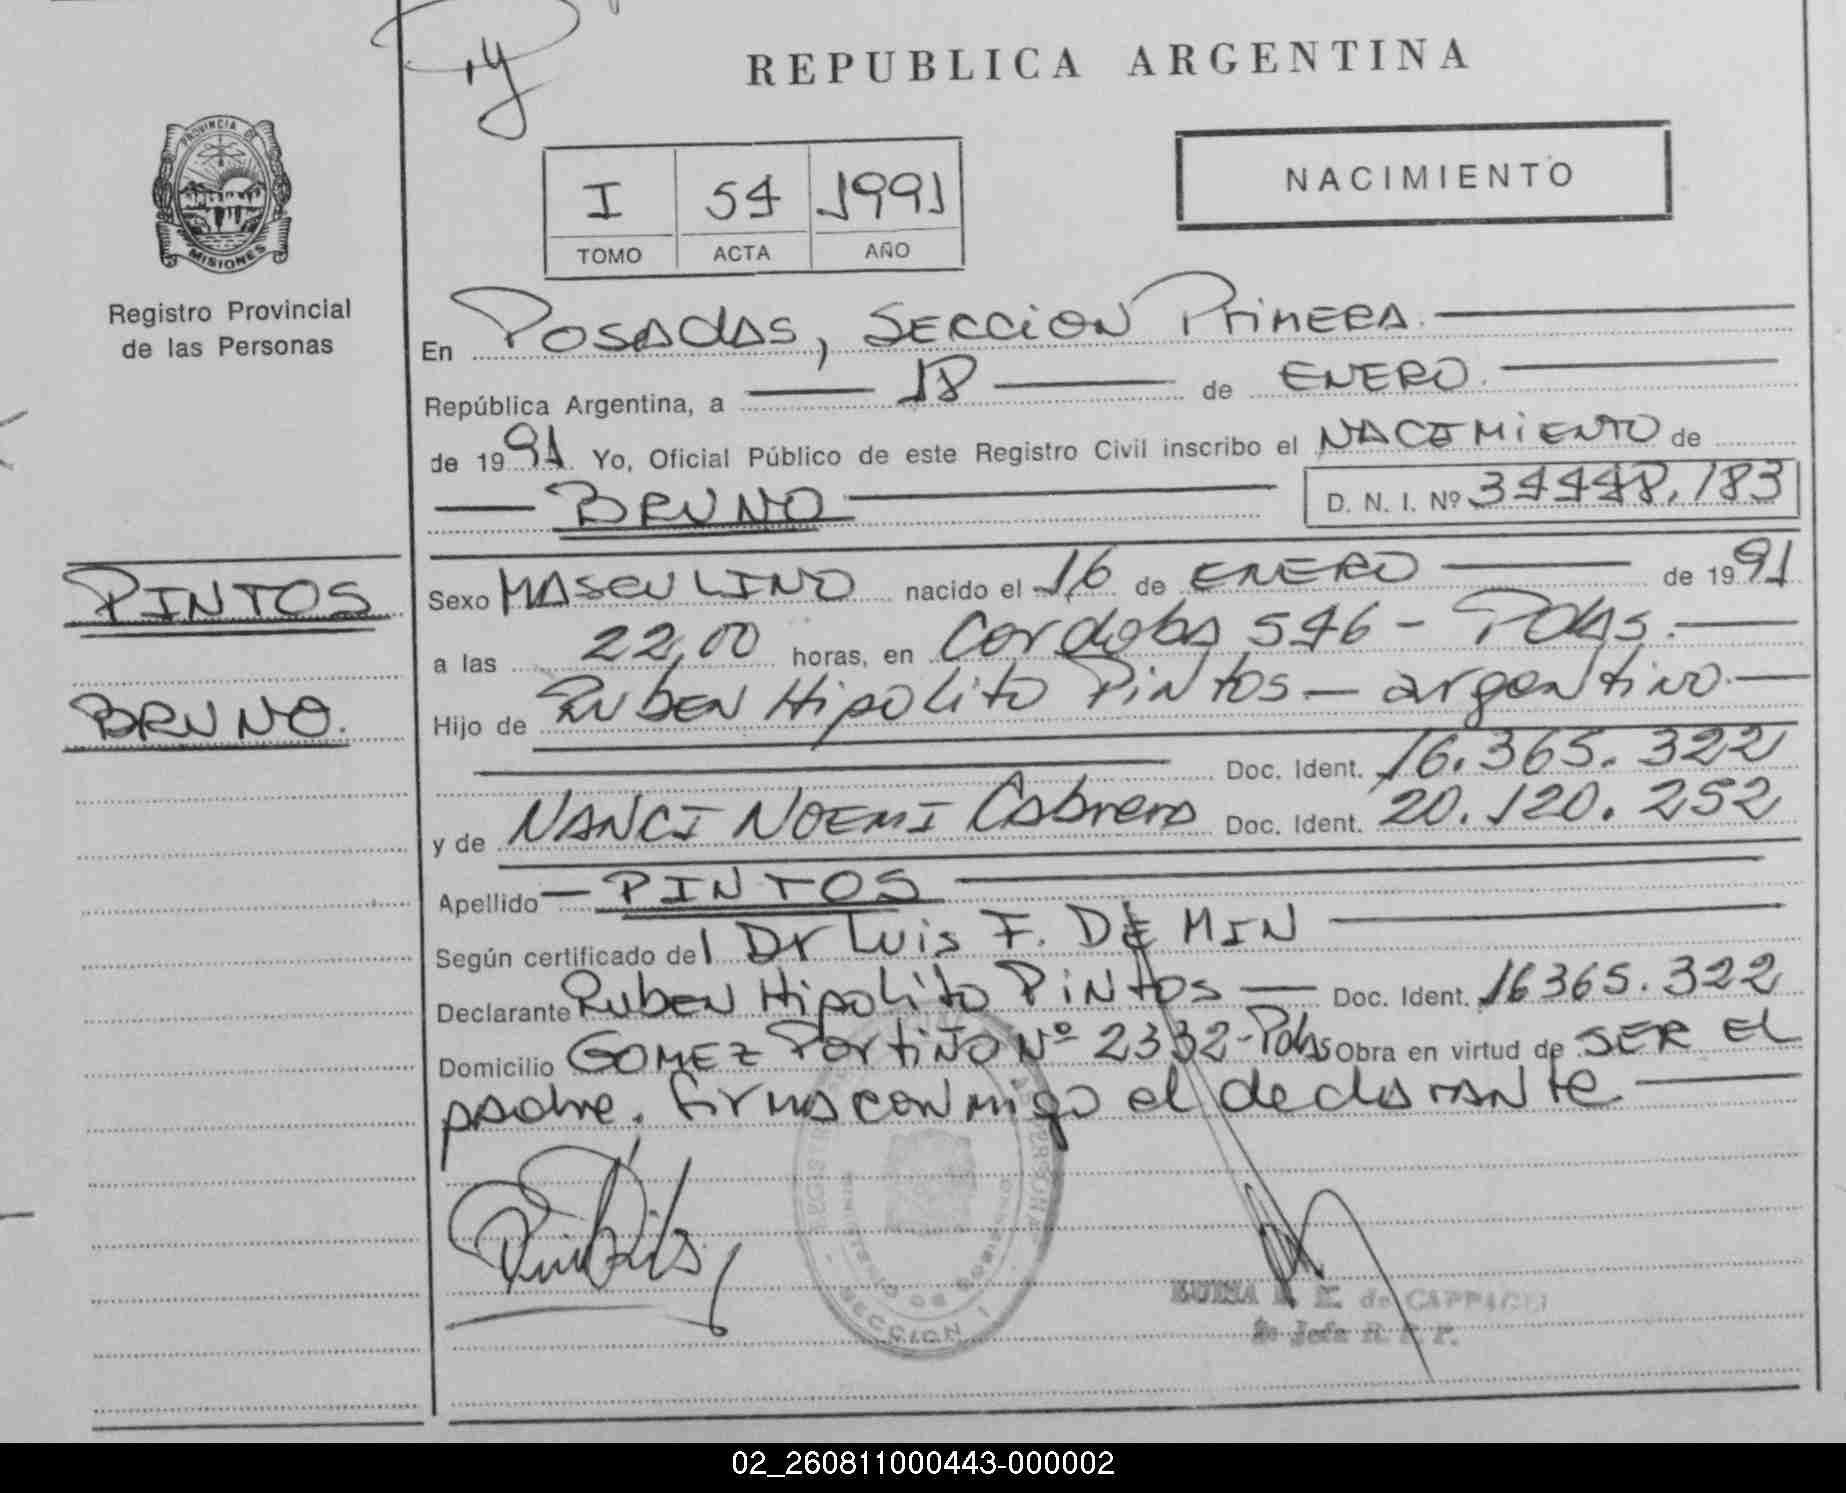 REPUBLICA ARGENTINA
PROVINCIA DE
MISIONES
Registro Provincial
de las Personas
I 54 1991
TOMO ACTA AÑO
NACIMIENTO
En POSADAS, SECCION PRIMERA.
República Argentina, a 18 de ENERO.
de 1991 Yo, Oficial Público de este Registro Civil inscribo el NACIMIENTO de
BRUNO D. N. I. Nº 34448.183
PINTOS
BRUNO.
Sexo MASCULINO nacido el 16 de ENERO de 1991
a las 22,00 horas, en Cordoba 546 - Pdas.
Hijo de Ruben Hipolito Pintos - argentino.
Doc. Ident. 16.365.322
y de NANCI NOEMI Cabrera Doc. Ident. 20.120.252
Apellido - PINTOS
Según certificado del Dr Luis F. DE MIN
Declarante Ruben Hipolito Pintos - Doc. Ident. 16365.322
Domicilio GOMEZ Portiño Nº 2332-Pdas Obra en virtud de SER EL
padre. firma conmigo el declarante
SECCION 1
de CAPPACIO
Jefa R. P. P.
02_260811000443-000002